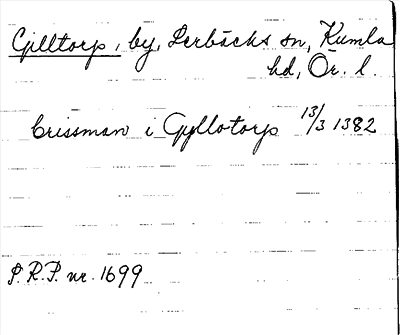 Gilltorp, by, Lerbäcks sn, Kumla
hd, Ör. l.
Crissman i Gyllotorp 13/3 1382
S. R. P. nr. 1699